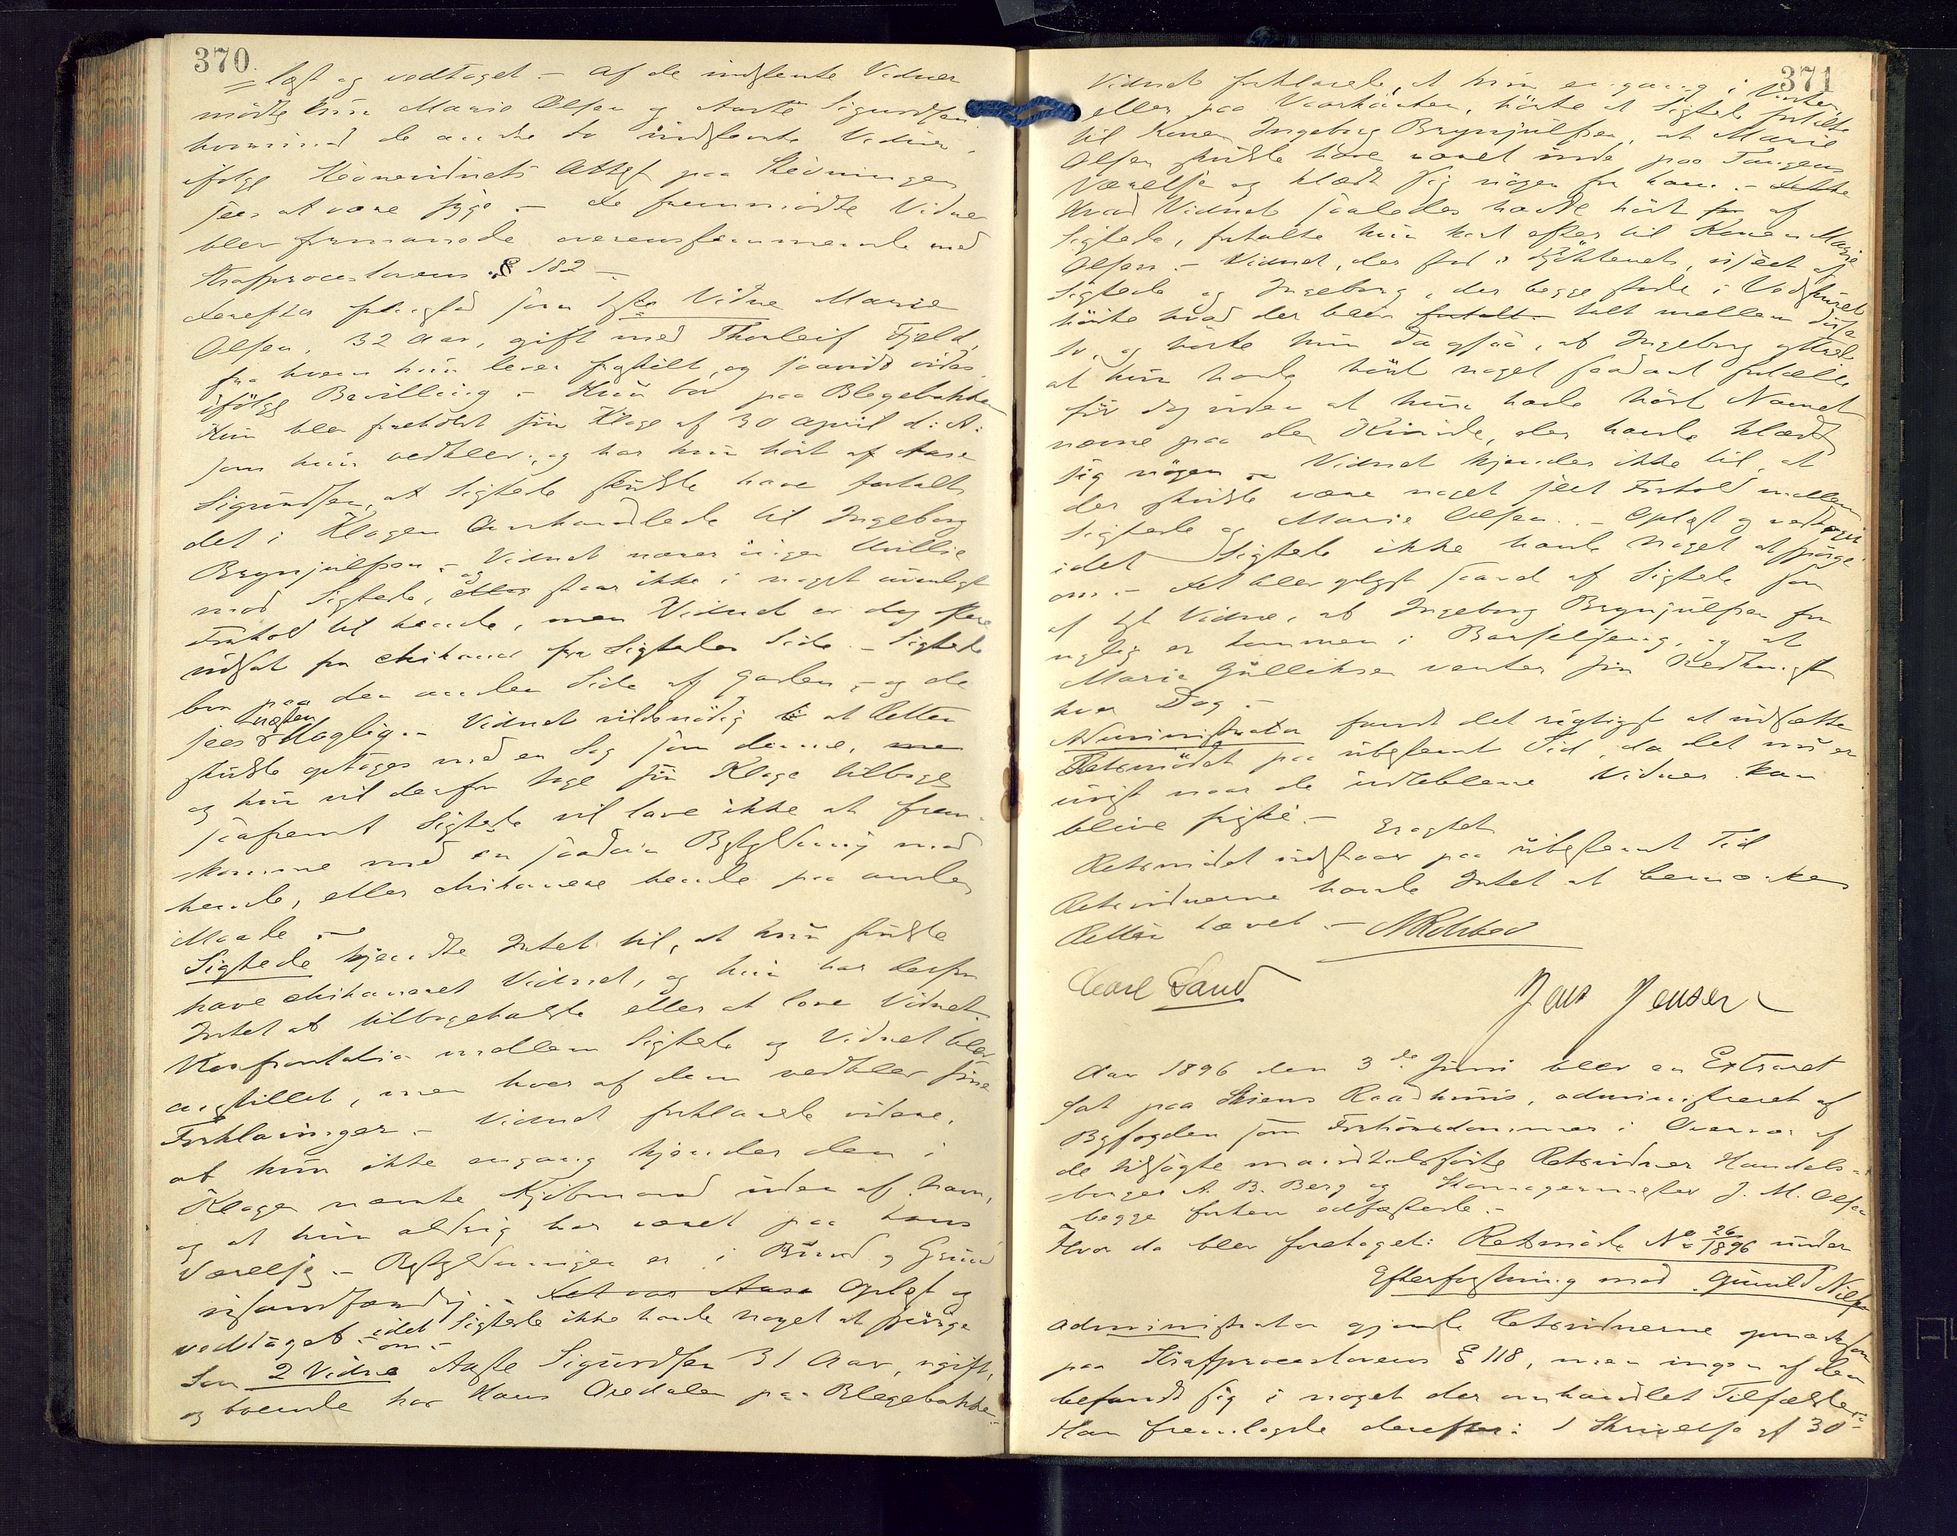 370
læst og vedtaget. – Af de indstevnte Vidner
mødte kun Marie Olsen og Aaste Sigurdsen
hvorimod de andre to indstevnte Vidner,
ifølge Stevnevidnets Attest paa Stevningen
sees at være syge. – De fremmødte Vidner
blev formanede overensstemmende med
Strafproceslovens § 182 –
Derefter fremstod som 1ste Vidne Marie
Olsen, 32 Aar, gift med Thorleif Fjeld,
fra hvem hun lever fraskilt, og saavidt vides
ifølge Bevilling. – Hun bor paa Blegebakken
Hun blev foreholdt sin Klage af 30 April d: A:
som hun vedblev, og har hun hørt af Aase
Sigurdsen, at Sigtede skulde have fortalt
det i Klagen Omhandlede til Ingeborg
Brynjulfsen. – Vidnet nærer ingen Uvillie
mod Sigtede, og staar ikke i noget uvenligt
Forhold til hende, men Vidnet er dog ofte
udsat for Chikaner fra Sigtedes Side. – Sigtede
bor paa den anden Side af Gaden, – og de
sees næsten daglig. – Vidnet vil nødig at Retten
skulde optages med en Sag som denne,
og hun vil derfor tage sin Klage tilbage
saafremt Sigtede vil love ikke at frem-
komme med en saadan Beskyldning mod
hende, eller chikanere hende paa anden
Maade. –
Sigtede kjendte Intet til, at hun skulde
have chikaneret Vidnet, og hun har derfor
Intet at tilbagekalde eller at love Vidnet.
Konfrontation mellem Sigtede og Vidnet blev
anstillet, men hver af dem vedblev sine
Forklaringer. – Vidnet forklarede videre,
at hun ikke engang kjender den i
Klagen nævnte Kjøbmand uden af Navn,
og at hun aldrig har været paa hans
Værelse. – Beskyldningen er i Bund og Grund
usandfærdig. – Det var Aase Oplæst og
vedtaget – idet Sigtede ikke havde noget at spørge
om –
Som 2 Vidne Aaste Sigurdsen 31 Aar, ugift,
og boende hos Hans Aredalen paa Blegebakken. –
371
Vidnet forklarede, at hun engang i Vinter,
eller paa Vaarkanten, hørte at Sigtede fortalte
til Konen Ingeborg Brynjulfsen, at Marie
Olsen skulde have været inde paa Tangens
Værelse og klædt sig nøgen for ham. – Dette
Hvad Vidnet saaledes havde hørt af
Sigtede, fortalte hun kort efter til Konen Marie
Olsen. – Vidnet, der stod i Kjøkkenet, useet af
Sigtede og Ingeborg, der begge stode i Vedskuret
hørte hvad der blev fortalt talt mellem disse
to, og hørte hun da ogsaa, at Ingeborg yttrede
at hun havde hørt noget saadant fortælle
før dog uden at hun havde hørt Navnet
nævne paa den Kvinde, der havde klædt
sig nøgen – Vidnet kjender ikke til, at
der skulde være noget seet Forhold mellem
Sigtede og Marie Olsen. – Oplæst og vedtaget
idet Sigtede ikke havde noget at spørge
om. – Det blev oplyst saavel af Sigtede som
af 1st Vidne, at Ingeborg Brynjulfsen for
nylig er kommen i Barselseng, og at
Marie Gulleksen venter sin Nedkomst
hver Dag. –
Administrator fandt det rigtigst at udsætte
Retsmødet paa ubestemt Tid, da det nu er
uvist naar de udeblevne Vidner kan
blive friske. – Eragtet
Retsmødet udstaar paa ubestemt Tid
Retsvidnerne havde Intet at bemærke
Retten hævet. –
Carl Sand
Jens Jensen
Aar 1896 den 3de Juni blev en Extraret
sat paa Skiens Raadhuus, administreret af
Byfogden som Forhørsdommer i Overvær af
de tilsagte mandtalsførte Retsvidner Handels-
borger A. B. Berg og Skomagermester J. M. Olsen
begge forhen edfæstede. –
Hvor da blev foretaget: Retsmøde No 26/1896 under
Efterforskning mod Gunild Nilsen
Administrator gjorde Retsvidnerne opmærksom
paa Strafproceslovens § 118, men ingen af dem
befandt sig i noget der omhandlet Tilfælde. –
Han fremlagde derefter: 1 Skrivelse af 30